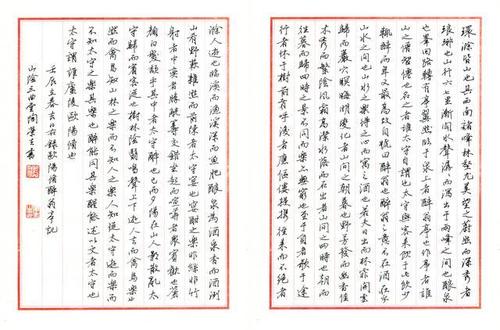 環滁皆山也其西南諸峰林壑尤美望之蔚然而深秀者
琅琊也山行六七里漸聞水聲潺潺而瀉出于兩峰之間也釀泉
也峯回路轉有亭翼然臨於泉上者醉翁亭也作亭者誰
山之僧智僊也名之者誰太守自謂也太守與客來飲于此飲少
輒醉而年又最高故自號曰醉翁也醉翁之意不在酒在乎
山水之間也山水之樂得之心而寓之酒也若夫日出而林霏開雲
歸而巖穴暝晦明變化者山間之朝暮也野芳發而幽香佳
木秀而繁陰風霜高潔水落而石出者山間之四時也朝而
往暮而歸四時之景不同而樂亦無窮也至于負者歌于塗
行者休于樹前者呼後者應傴僂提攜往來而不絕者
滁人遊也臨溪而漁溪深而魚肥釀泉為酒泉香而酒洌
山肴野蔌雜然而前陳者太守宴也宴酣之樂非絲非竹
射者中奕者勝觥籌交錯坐起而喧嘩者衆賓歡也蒼
顏白髮頹乎其中者太守醉也已而夕陽在山人影散亂太
守歸而賓客從也樹林陰翳鳴聲上下遊人去而禽鳥樂也
然而禽鳥知山林之樂而不知人之樂人知從太守遊而樂而
不知太守之樂其樂也醉能同其樂醒能述以文者太守也
太守謂誰廬陵歐陽脩也
壬辰立春吉日錄歐陽脩醉翁亭記
山陰三曲堂